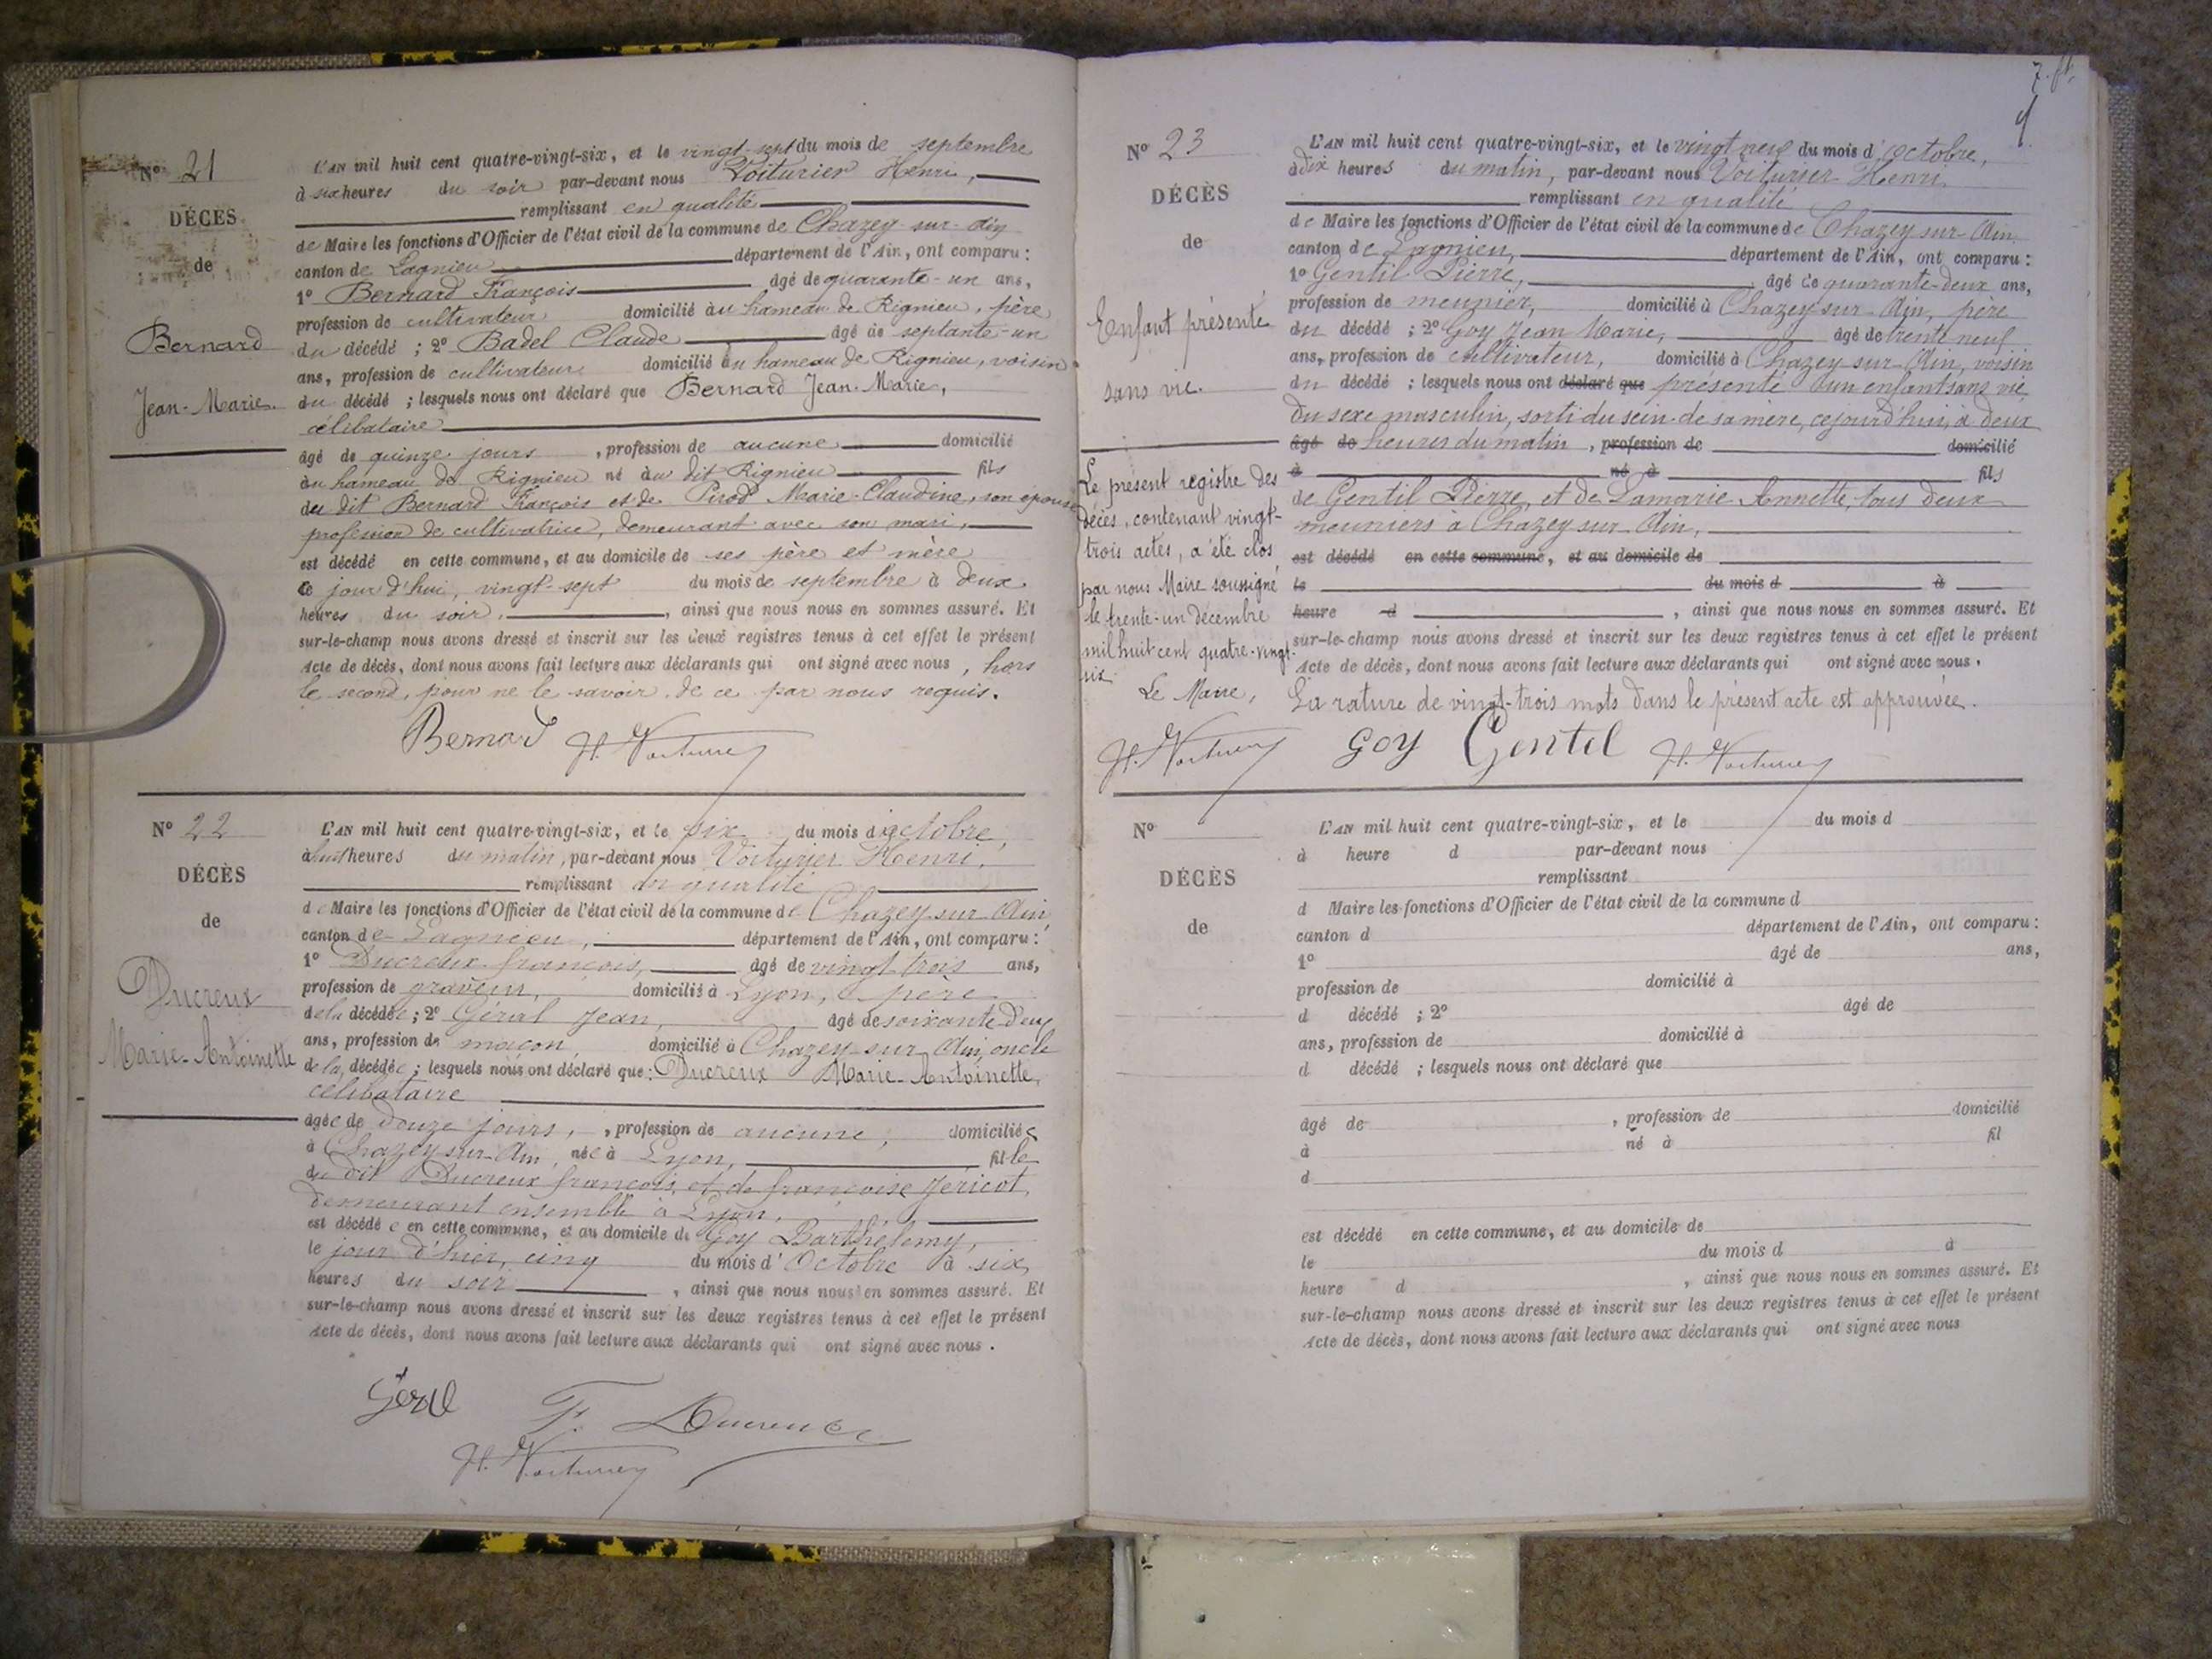 N° 21
DÉCÈS
de
Bernard
Jean-Marie.
L'AN mil huit cent quatre-vingt-six, et le vingt-sept du mois de septembre
à six heures du soir par-devant nous Voiturier Henri,
remplissant en qualité
de Maire les fonctions d'Officier de l'état civil de la commune de Chazey-sur-Ain
canton de Lagnieu département de l'Ain, ont comparu :
1° Bernard François âgé de quarante-un ans,
profession de cultivateur domicilié au hameau de Rignieu, père
du décédé ; 2° Badel Claude âgé de septante-un
ans, profession de cultivateur domicilié au hameau de Rignieu, voisin
du décédé ; lesquels nous ont déclaré que Bernard Jean-Marie,
célibataire
âgé de quinze jours, profession de aucune domicilié
au hameau de Rignieu né au dit Rignieu fils
du dit Bernard François et de Pirod Marie-Claudine, son épouse
profession de cultivatrice, demeurant avec son mari,
est décédé en cette commune, et au domicile de ses père et mère
ce jour d'hui, vingt-sept du mois de septembre à deux
heures du soir, ainsi que nous nous en sommes assuré. Et
sur-le-champ nous avons dressé et inscrit sur les deux registres tenus à cet effet le présent
Acte de décès, dont nous avons fait lecture aux déclarants qui ont signé avec nous, hors
le second, pour ne le savoir, de ce par nous requis.
Bernard H. Voiturier
N° 22
DÉCÈS
de
Ducreux
Marie-Antoinette
L'AN mil huit cent quatre-vingt-six, et le six du mois d'octobre,
à huit heures du matin, par-devant nous Voiturier Henri,
remplissant en qualité
de Maire les fonctions d'Officier de l'état civil de la commune de Chazey-sur-Ain
canton de Lagnieu, département de l'Ain, ont comparu :
1° Ducreux françois, âgé de vingt-trois ans,
profession de graveur, domicilié à Lyon, père
de la décédée ; 2° Géral Jean, âgé de soixante-deux
ans, profession de maçon domicilié à Chazey-sur-Ain, oncle
de la décédée ; lesquels nous ont déclaré que : Ducreux Marie-Antoinette,
célibataire
âgée de douze jours, profession de aucune, domiciliée
à Chazey-sur-Ain, née à Lyon, fille
du dit Ducreux françois, et de françoise Jericot,
demeurant ensemble à Lyon,
est décédée en cette commune, et au domicile de Goy Barthélemy,
le jour d'hier, cinq du mois d'Octobre à six
heures du soir, ainsi que nous nous en sommes assuré. Et
sur-le-champ nous avons dressé et inscrit sur les deux registres tenus à cet effet le présent
Acte de décès, dont nous avons fait lecture aux déclarants qui ont signé avec nous.
Géral F. Ducreux
H. Voiturier
N° 23
DÉCÈS
de
Enfant présenté
sans vie.
Le présent registre des
décès, contenant vingt-
trois actes, a été clos
par nous Maire soussigné
le trente-un décembre
mil huit cent quatre-vingt-
six.
Le Maire,
H. Voiturier
L'AN mil huit cent quatre-vingt-six, et le vingt neuf du mois d'octobre,
à dix heures du matin, par-devant nous Voiturier Henri,
remplissant en qualité
de Maire les fonctions d'Officier de l'état civil de la commune de Chazey-sur-Ain
canton de Lagnieu, département de l'Ain, ont comparu :
1° Gentil Pierre, âgé de quarante-deux ans,
profession de meunier, domicilié à Chazey-sur-Ain, père
du décédé ; 2° Goy Jean Marie, âgé de trente neuf
ans, profession de cultivateur, domicilié à Chazey-sur-Ain, voisin
du décédé ; lesquels nous ont déclaré que présenté un enfant sans vie,
du sexe masculin, sorti du sein de sa mère, cejourd'hui, à deux
âgé de heures du matin, profession de domicilié
à né à fils
de Gentil Pierre, et de Lamarie Annette, tous deux
meuniers à Chazey-sur-Ain,
est décédé en cette commune, et au domicile de
le du mois d à
heure d, ainsi que nous nous en sommes assuré. Et
sur-le-champ nous avons dressé et inscrit sur les deux registres tenus à cet effet le présent
Acte de décès, dont nous avons fait lecture aux déclarants qui ont signé avec nous.
La rature de vingt-trois mots dans le présent acte est approuvée.
Goy Gentil H. Voiturier
N°
DÉCÈS
de
L'AN mil huit cent quatre-vingt-six, et le du mois d
à heure d par-devant nous
remplissant
d Maire les fonctions d'Officier de l'état civil de la commune d
canton d département de l'Ain, ont comparu :
1° âgé de ans,
profession de domicilié à
d décédé ; 2° âgé de
ans, profession de domicilié à
d décédé ; lesquels nous ont déclaré que
âgé de, profession de domicilié
à né à fil
d
est décédé en cette commune, et au domicile de
le du mois d à
heure d, ainsi que nous nous en sommes assuré. Et
sur-le-champ nous avons dressé et inscrit sur les deux registres tenus à cet effet le présent
Acte de décès, dont nous avons fait lecture aux déclarants qui ont signé avec nous